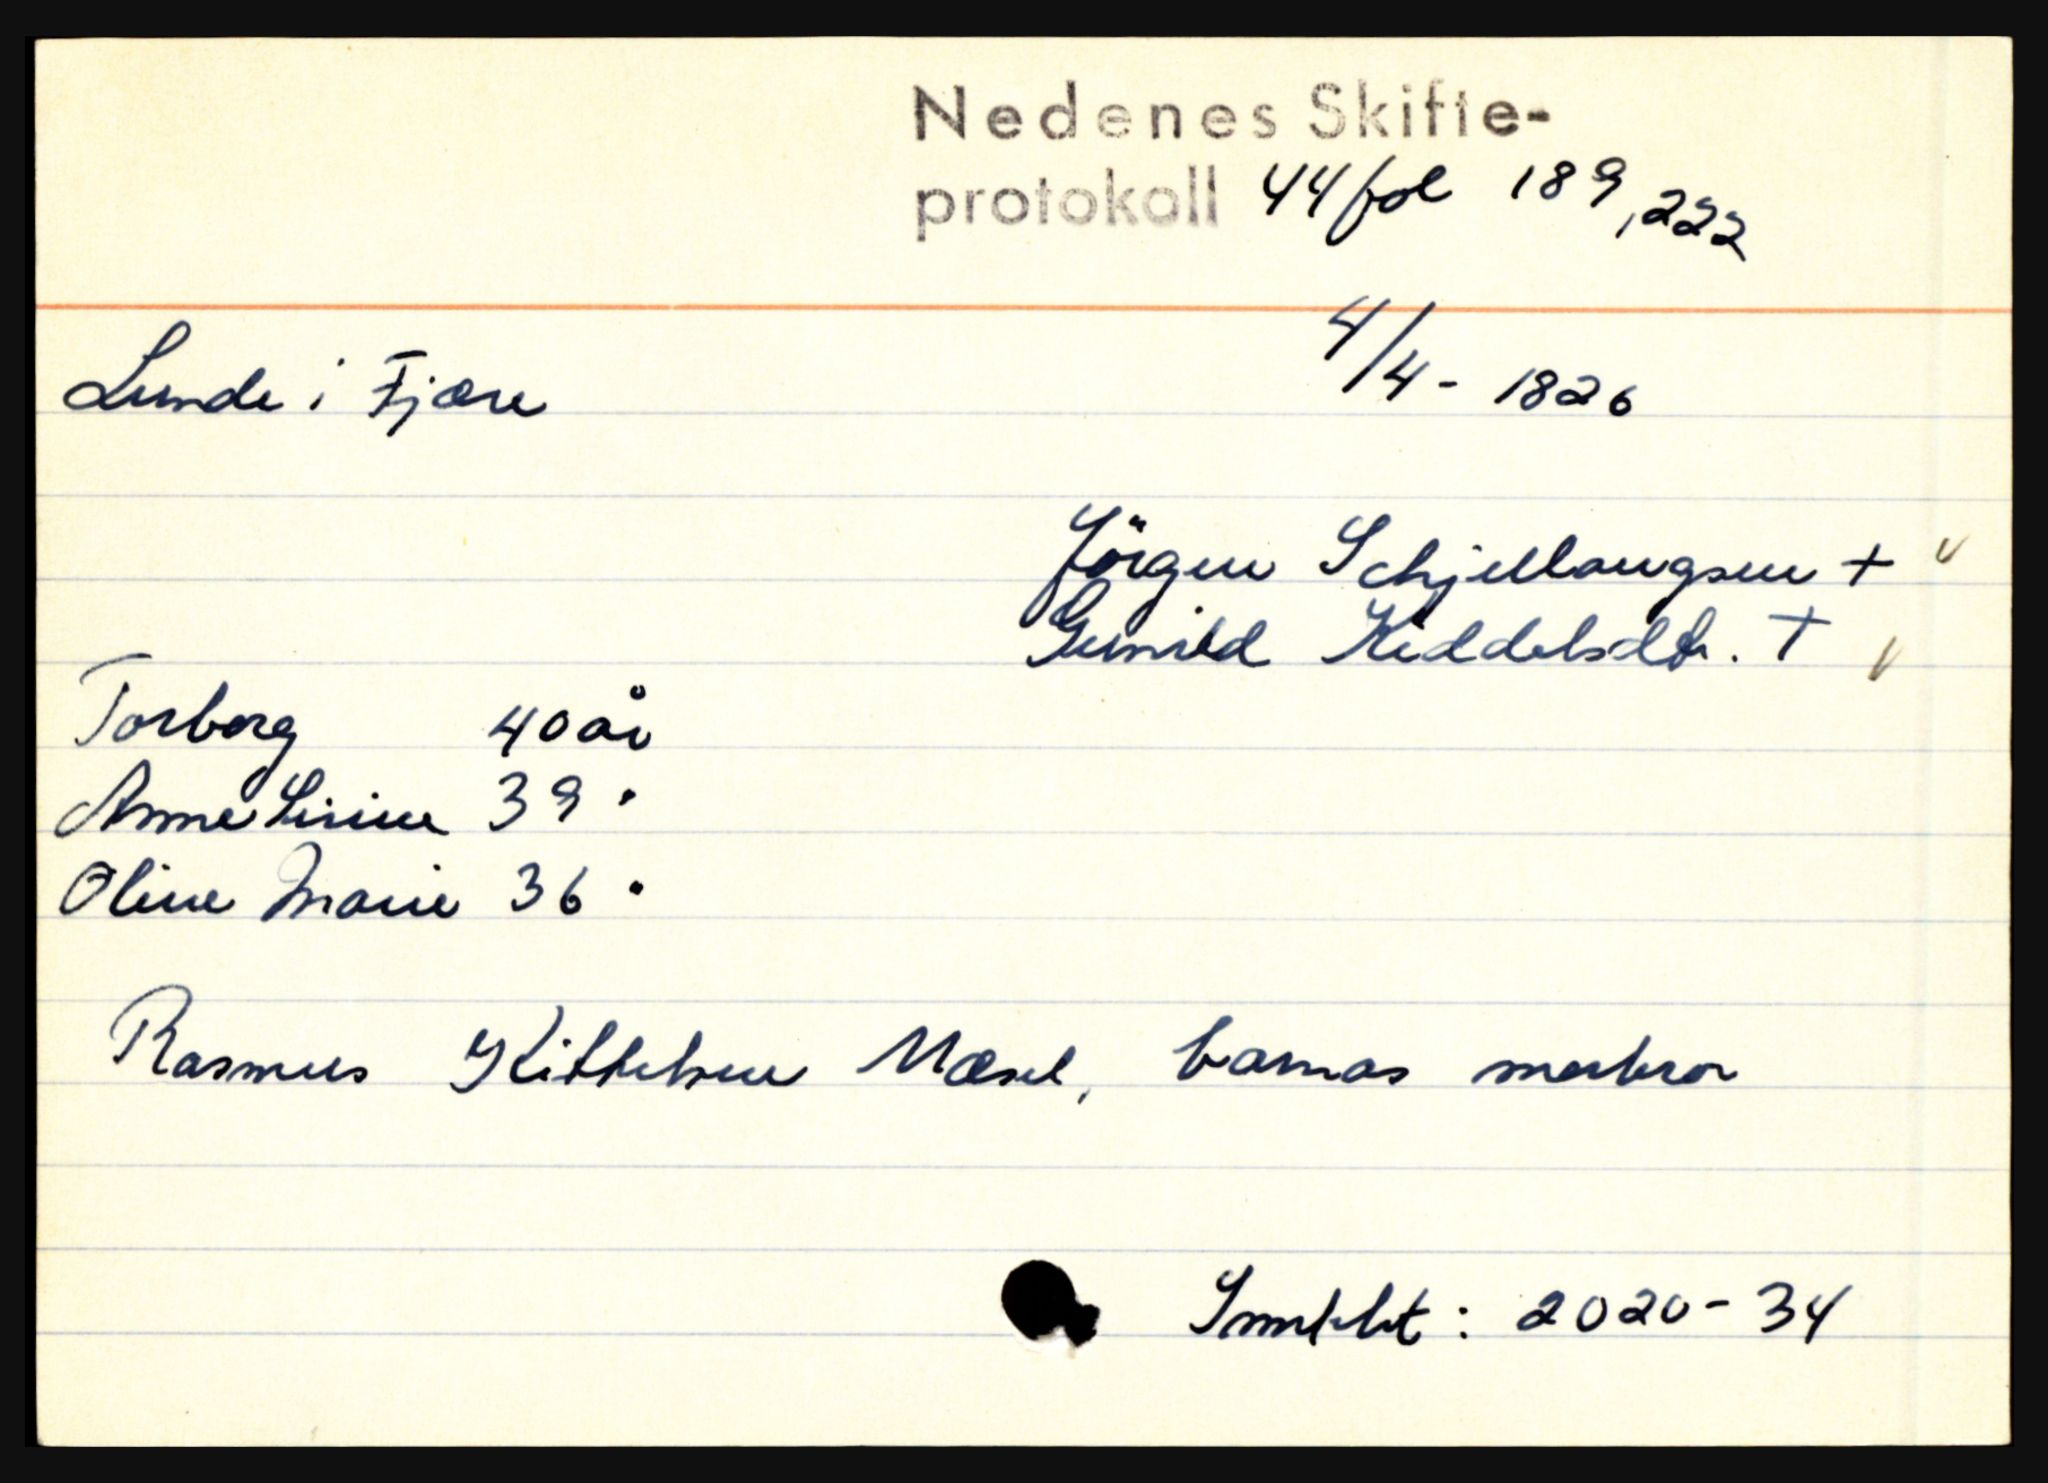 Nedenes Skifte-
protokoll 44 fol 189, 222
Lunde i Fjære 4/4 - 1826
Jörgen Schjellaugsen +
Gunild Keddelsdtr. +
Torborg 40 år
Anne Sirine 39 "
Oline Marie 36 "
Rasmus Kittelsen Mæsel, barnas morbror
: 2020 - 34